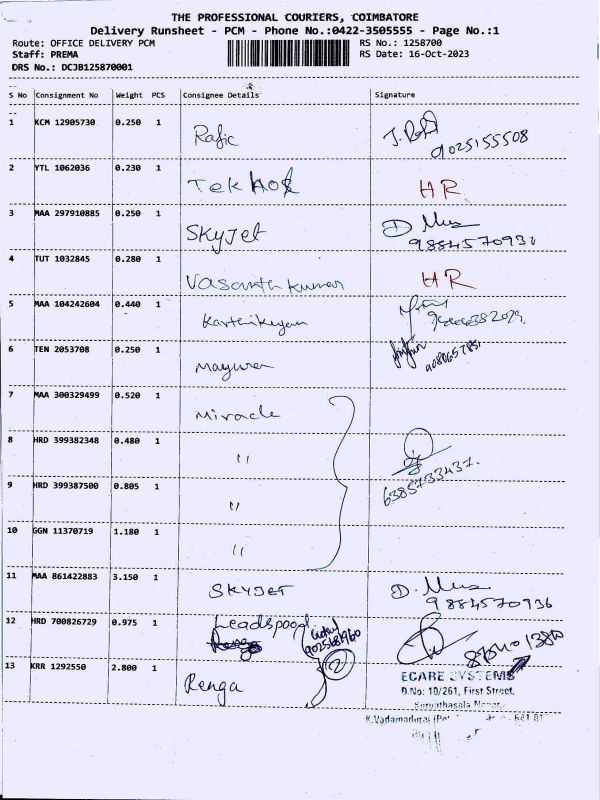 THE PROFESSIONAL COURIERS, COIMBATORE
Delivery Runsheet - PCM - Phone No.:0422-3505555 - Page No.:1
Route: OFFICE DELIVERY PCM RS No.: 1258700
Staff: PREMA RS Date: 16-Oct-2023
DRS No.: DCJB125870001
S No Consignment No Weight PCS Consignee Details Signature
1 KCM 12905730 0.250 1 Rafic
9025155508
2 YTL 1062036 0.230 1 HR
3 MAA 297910885 0.250 1 SKYJet
4 TUT 1032845 0.280 1 Vasanth kumar HR
5 MAA 104242604 0.440 1 Karthikeyan
6 TEN 2053708 0.250 1
7 MAA 300329499 0.520 1 Miracle
8 HRD 399382348 0.480 1 "
6385733437.
9 HRD 399387500 0.805 1 "
10 GGN 11370719 1.180 1 "
11 MAA 861422883 3.150 1 SKYJET
9884570936
12 HRD 700826729 0.975 1
13 KRR 1292550 2.800 1 Renga 2
ECARE SYSTEMS
D.No: 10/261, First Street,
K.Vadamadurai